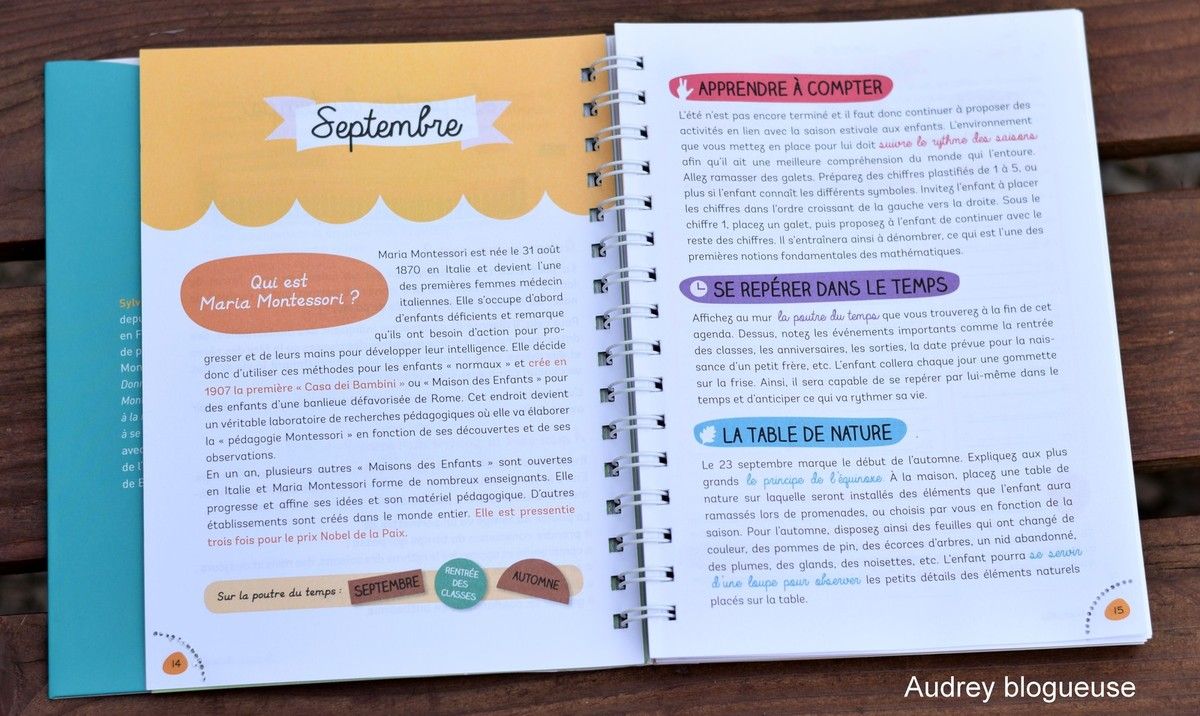 Sylv
depu
en F
de p
Mon
Donn
Mont
à la
à se
avec
de l'
de B
Septembre
Qui est
Maria Montessori ?
Maria Montessori est née le 31 août
1870 en Italie et devient l'une
des premières femmes médecin
italiennes. Elle s'occupe d'abord
d'enfants déficients et remarque
qu'ils ont besoin d'action pour pro-
gresser et de leurs mains pour développer leur intelligence. Elle décide
donc d'utiliser ces méthodes pour les enfants « normaux » et crée en
1907 la première « Casa dei Bambini » ou « Maison des Enfants » pour
des enfants d'une banlieue défavorisée de Rome. Cet endroit devient
un véritable laboratoire de recherches pédagogiques où elle va élaborer
la « pédagogie Montessori » en fonction de ses découvertes et de ses
observations.
En un an, plusieurs autres « Maisons des Enfants » sont ouvertes
en Italie et Maria Montessori forme de nombreux enseignants. Elle
progresse et affine ses idées et son matériel pédagogique. D'autres
établissements sont créés dans le monde entier. Elle est pressentie
trois fois pour le prix Nobel de la Paix.
Sur la poutre du temps : SEPTEMBRE RENTRÉE DES CLASSES AUTOMNE
14
APPRENDRE À COMPTER
L'été n'est pas encore terminé et il faut donc continuer à proposer des
activités en lien avec la saison estivale aux enfants. L'environnement
que vous mettez en place pour lui doit suivre le rythme des saisons
afin qu'il ait une meilleure compréhension du monde qui l'entoure.
Allez ramasser des galets. Préparez des chiffres plastifiés de 1 à 5, ou
plus si l'enfant connaît les différents symboles. Invitez l'enfant à placer
les chiffres dans l'ordre croissant de la gauche vers la droite. Sous le
chiffre 1, placez un galet, puis proposez à l'enfant de continuer avec le
reste des chiffres. Il s'entraînera ainsi à dénombrer, ce qui est l'une des
premières notions fondamentales des mathématiques.
SE REPÉRER DANS LE TEMPS
Affichez au mur la poutre du temps que vous trouverez à la fin de cet
agenda. Dessus, notez les événements importants comme la rentrée
des classes, les anniversaires, les sorties, la date prévue pour la nais-
sance d'un petit frère, etc. L'enfant collera chaque jour une gommette
sur la frise. Ainsi, il sera capable de se repérer par lui-même dans le
temps et d'anticiper ce qui va rythmer sa vie.
LA TABLE DE NATURE
Le 23 septembre marque le début de l'automne. Expliquez aux plus
grands le principe de l'équinoxe. À la maison, placez une table de
nature sur laquelle seront installés des éléments que l'enfant aura
ramassés lors de promenades, ou choisis par vous en fonction de la
saison. Pour l'automne, disposez ainsi des feuilles qui ont changé de
couleur, des pommes de pin, des écorces d'arbres, un nid abandonné,
des plumes, des glands, des noisettes, etc. L'enfant pourra se servir
d'une loupe pour observer les petits détails des éléments naturels
placés sur la table.
15
Audrey blogueuse